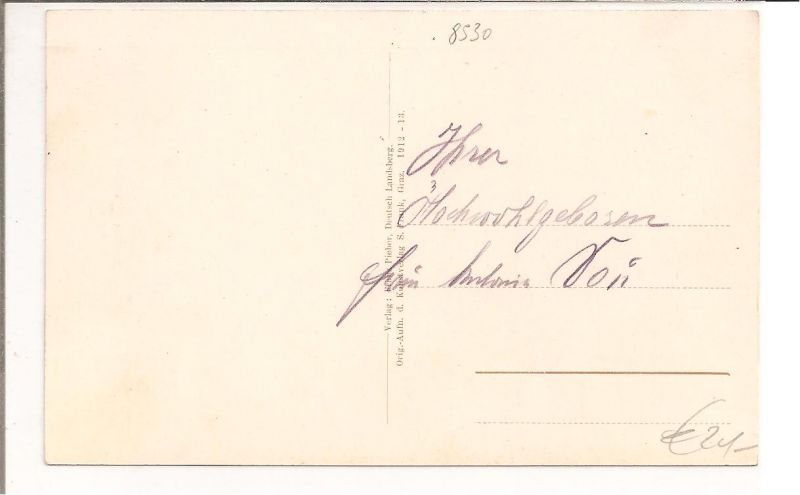 8530
Verlag: Pieber, Deutsch Landsberg.
Orig.-Aufn. d. Kunstverlag S. Frank, Graz. 1912 - 13.
Ihrer
3
Hochwohlgeboren
Frau Antonia
€ 21,-